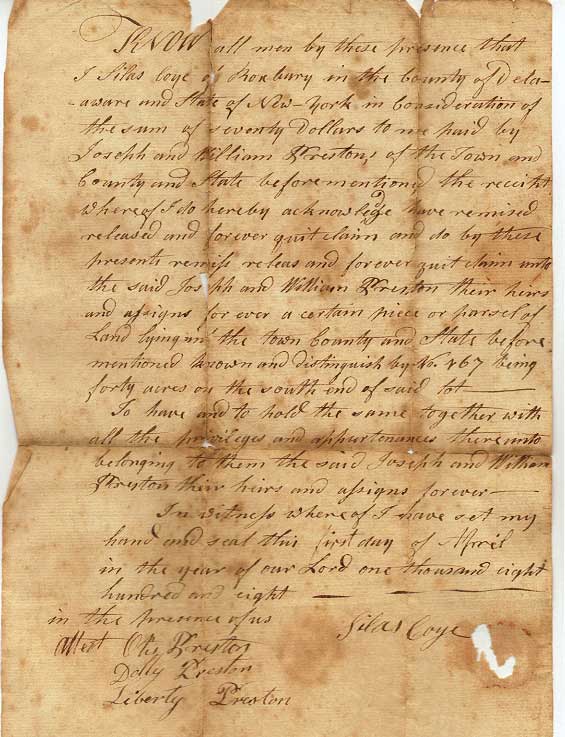 KNOW all men by these presence that
I Silas Coye of Roxbury in the County of Dela-
-aware and State of New-York in Consideration of
the sum of seventy Dollars to me paid by
Joseph and William Prestons of the Town and
County and State beforementioned the receiht
whereof I do hereby acknowledge have remised
released and forever quit claim and do by these
presents remiss releas and forever quit claim unto
the said Joseph and William Preston their heirs
and assigns for ever a certain piece or parsel of
Land lying in the town County and State before
mentioned known and distinguish by No. 167 being
forty acres on the south end of said lot
To have and to hold the same together with
all the privileges and appurtenances thereunto
belonging to them the said Joseph and William
Preston their heirs and assigns forever
In witness whereof I have set my
hand and seal this first day of April
in the year of our Lord one thousand eight
hundred and eight
in the presence of us
Silas Coye
Attest Otis Preston
Dolly Preston
Liberty Preston